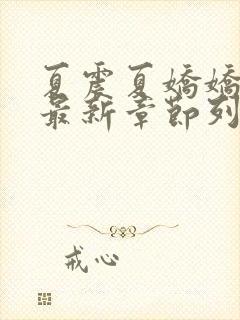 夏震夏嬌嬌
最新章節列
戒心